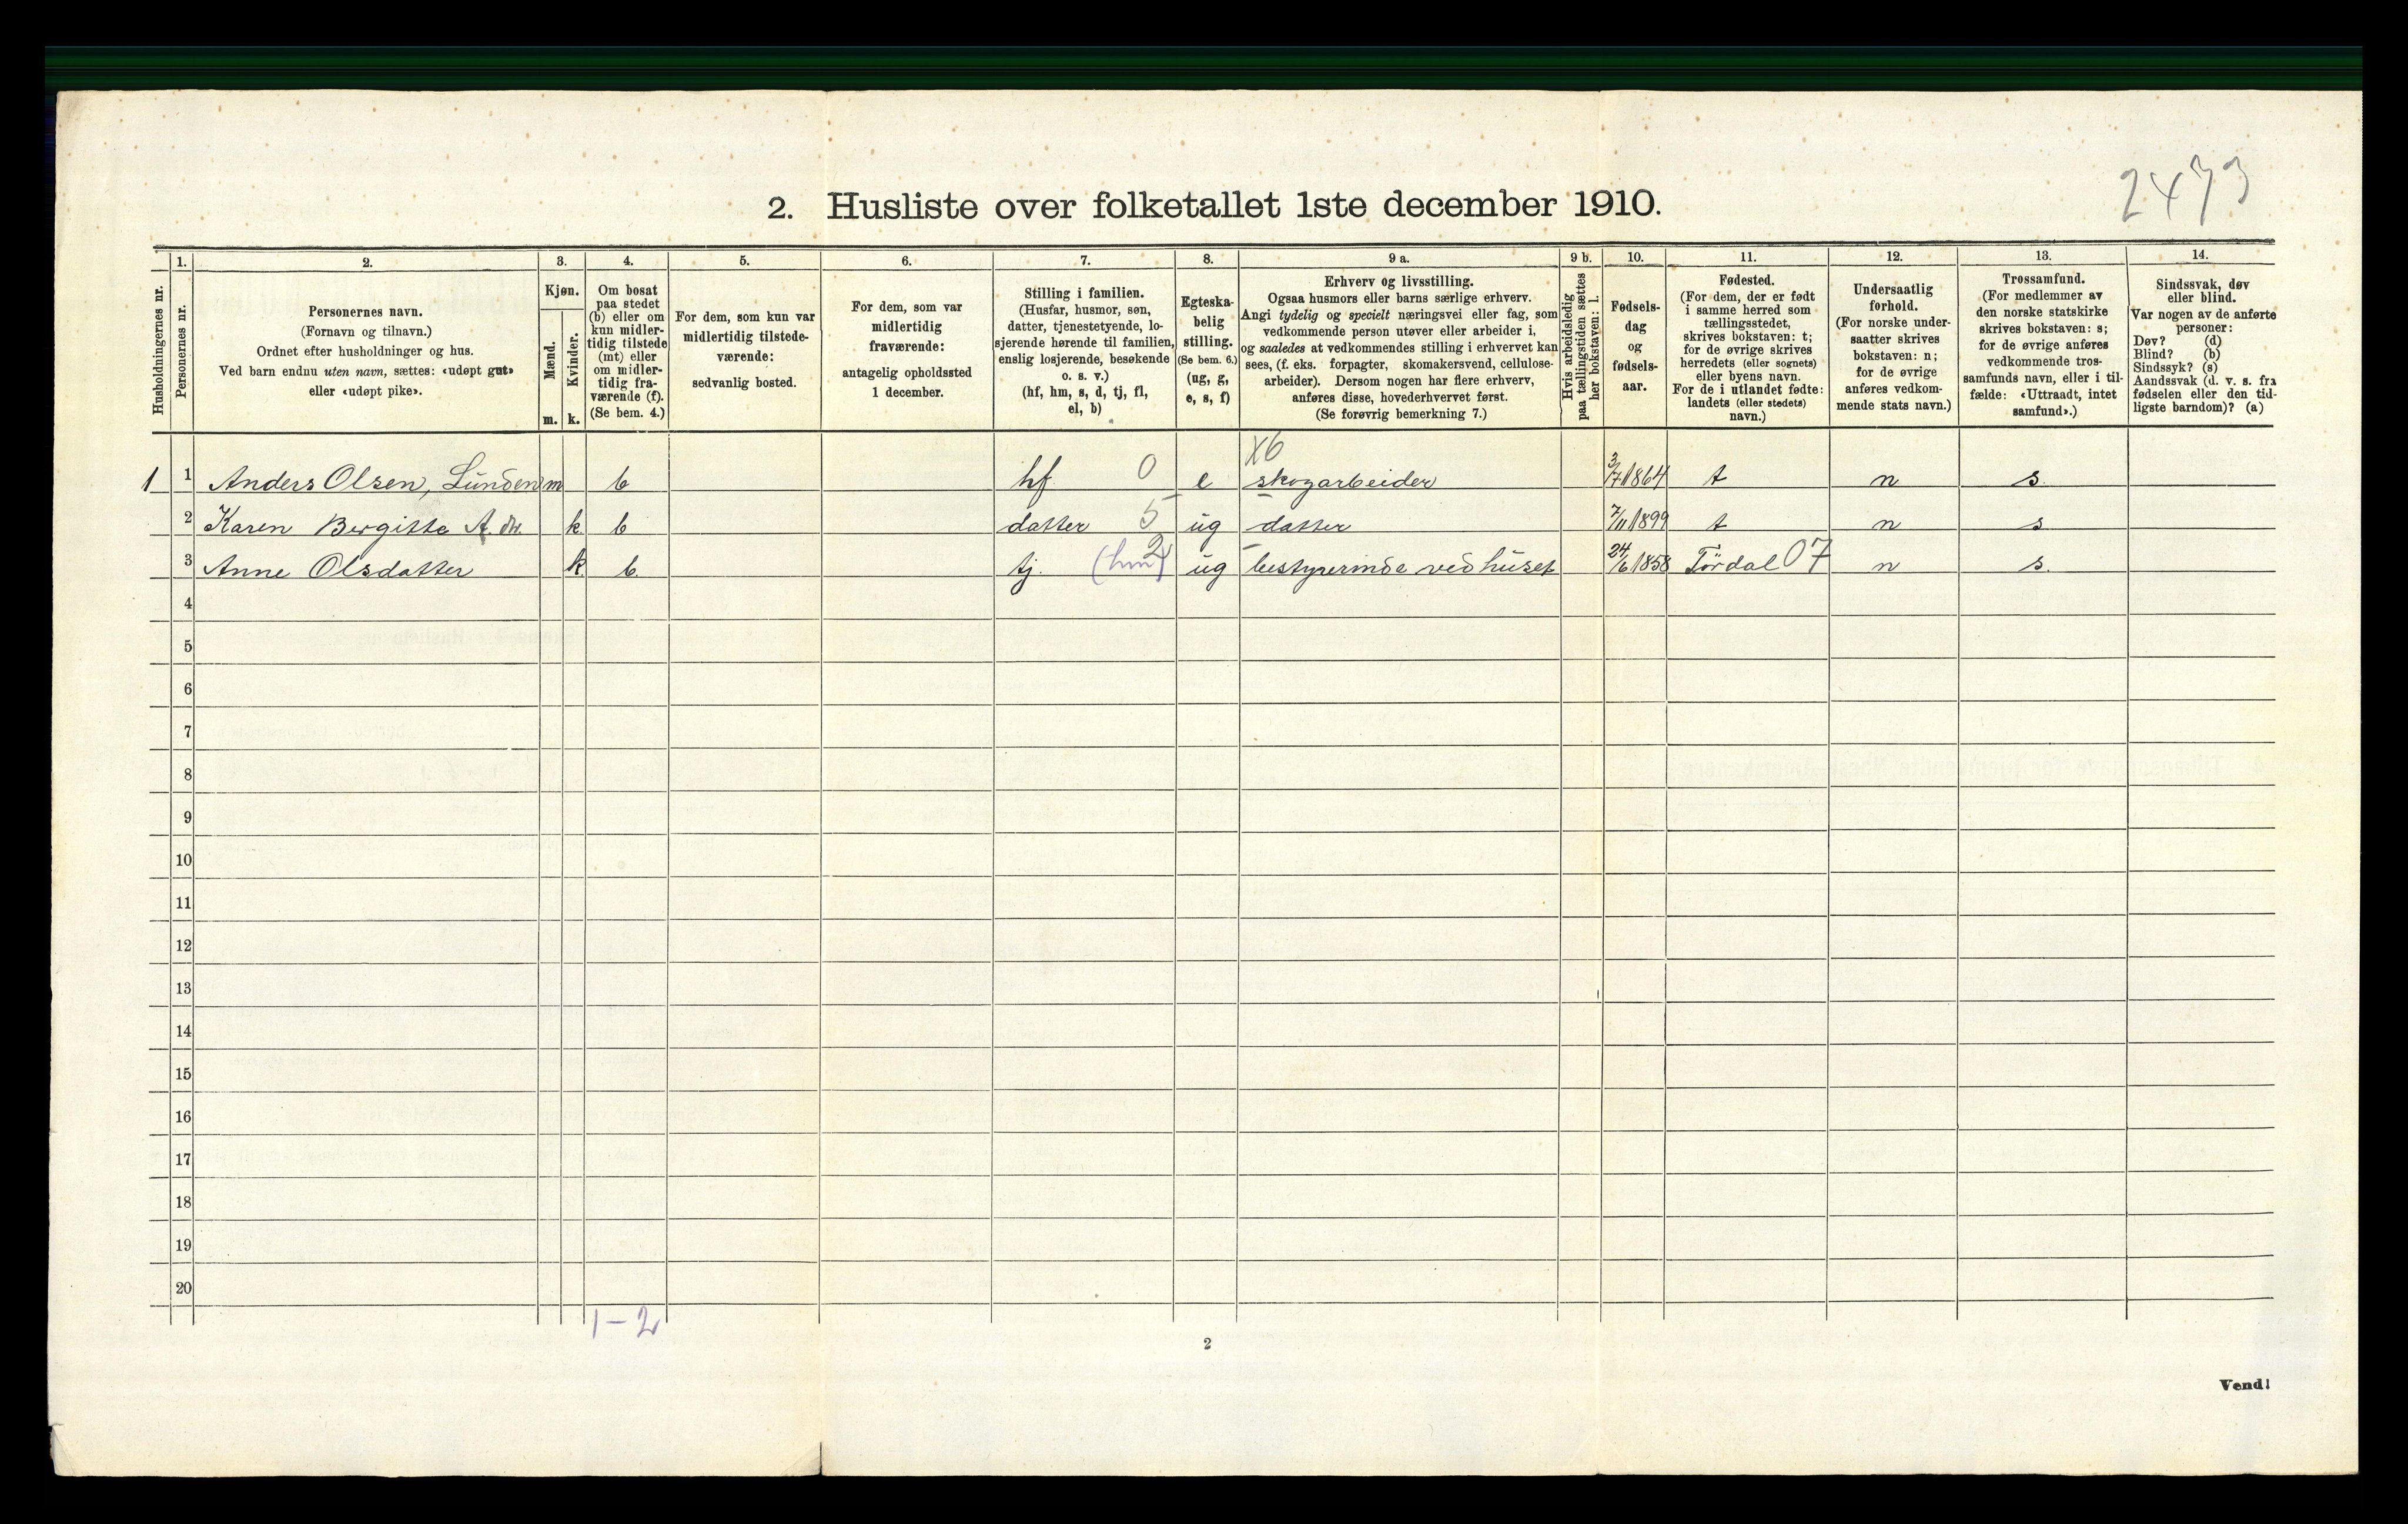 2473
2. Husliste over folketallet 1ste december 1910.
Husholdningernes nr.
1.
Personernes nr.
2.
Personernes navn.
(Fornavn og tilnavn.)
Ordnet efter husholdninger og hus.
Ved barn endnu uten navn, sættes: «udøpt gut»
eller «udøpt pike».
3.
Kjøn.
Mænd.
Kvinder.
m. k.
4.
Om bosat
paa stedet
(b) eller om
kun midler-
tidig tilstede
(mt) eller
om midler-
tidig fra-
værende (f).
(Se bem. 4.)
5.
For dem, som kun var
midlertidig tilstede-
værende:
sedvanlig bosted.
6.
For dem, som var
midlertidig
fraværende:
antagelig opholdssted
1 december.
7.
Stilling i familien.
(Husfar, husmor, søn,
datter, tjenestetyende, lo-
sjerende hørende til familien,
enslig losjerende, besøkende
o. s. v.)
(hf, hm, s, d, tj, fl,
el, b)
8.
Egteska-
belig
stilling.
(Se bem. 6.)
(ug, g,
e, s, f)
9 a.
Erhverv og livsstilling.
Ogsaa husmors eller barns særlige erhverv.
Angi tydelig og specielt næringsvei eller fag, som
vedkommende person utøver eller arbeider i,
og saaledes at vedkommendes stilling i erhvervet kan
sees, (f. eks. forpagter, skomakersvend, cellulose-
arbeider). Dersom nogen har flere erhverv,
anføres disse, hovederhvervet først.
(Se forøvrig bemerkning 7.)
9 b.
Hvis arbeidsledig
paa tællingstiden sættes
her bokstaven: l.
10.
Fødsels-
dag
og
fødsels-
aar.
11.
Fødested.
(For dem, der er født
i samme herred som
tællingsstedet,
skrives bokstaven: t;
for de øvrige skrives
herredets (eller sognets)
eller byens navn.
For de i utlandet fødte:
landets (eller stedets)
navn.)
12.
Undersaatlig
forhold.
(For norske under-
saatter skrives
bokstaven: n;
for de øvrige
anføres vedkom-
mende stats navn.)
13.
Trossamfund.
(For medlemmer av
den norske statskirke
skrives bokstaven: s;
for de øvrige anføres
vedkommende tros-
samfunds navn, eller i til-
fælde: «Uttraadt, intet
samfund».)
14.
Sindssvak, døv
eller blind.
Var nogen av de anførte
personer:
Døv? (d)
Blind? (b)
Sindssyk? (s)
Aandssvak (d. v. s. fra
fødselen eller den tid-
ligste barndom)? (a)
X6
1 1 Anders Olsen, Lunden m b hf 0 e skogarbeider 3/7 1864 t n s.
2 Karen Bergitte A. dtr. k b datter 5 ug datter 7/11 1899 t n s
3 Anne Olsdatter k b. tj. (hm) 2 ug bestyrerinde ved huset 24/6 1858 Tørdal 07 n s.
4
5
6
7
8
9
10
11
12
13
14
15
16
17
18
19
20
1-2
2
Vend!